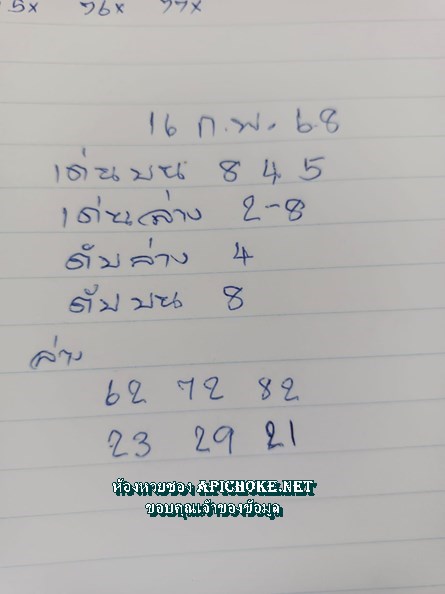 5x 76x 77x
16 ก.พ. 68
เด่นบน 8 4 5
เด่นล่าง 2-8
ดับล่าง 4
ดับบน 8
ล่าง
62 72 82
23 29 21
ห้องหวยซอง APICHOKE.NET
ขอบคุณเจ้าของข้อมูล